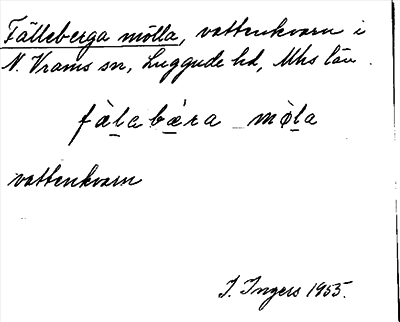 Fälleberga mölla, vattenkvarn i
N. Vrams sn, Luggude hd, Mhs län.
fàlabæ̀ra mø̀la
vattenkvarn
I. Ingers 1955.